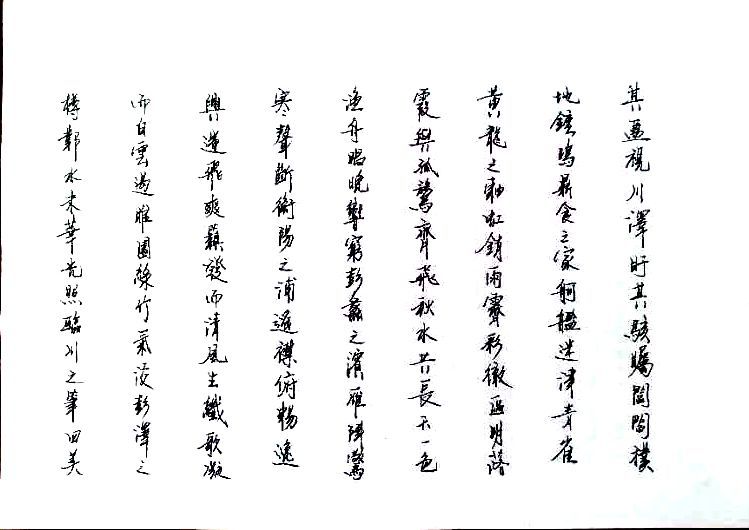 其盈視川澤盱其駭矚閭閻撲
地鐘鳴鼎食之家舸艦迷津青雀
黃龍之舳虹銷雨霽彩徹區明落
霞與孤鶩齊飛秋水共長天一色
漁舟唱晚響窮彭蠡之濱雁陣驚
寒聲斷衡陽之浦遥襟俯暢逸
興遄飛爽籟發而清風生纖歌凝
而白雲遏睢園綠竹氣凌彭澤之
樽鄴水朱華光照臨川之筆四美